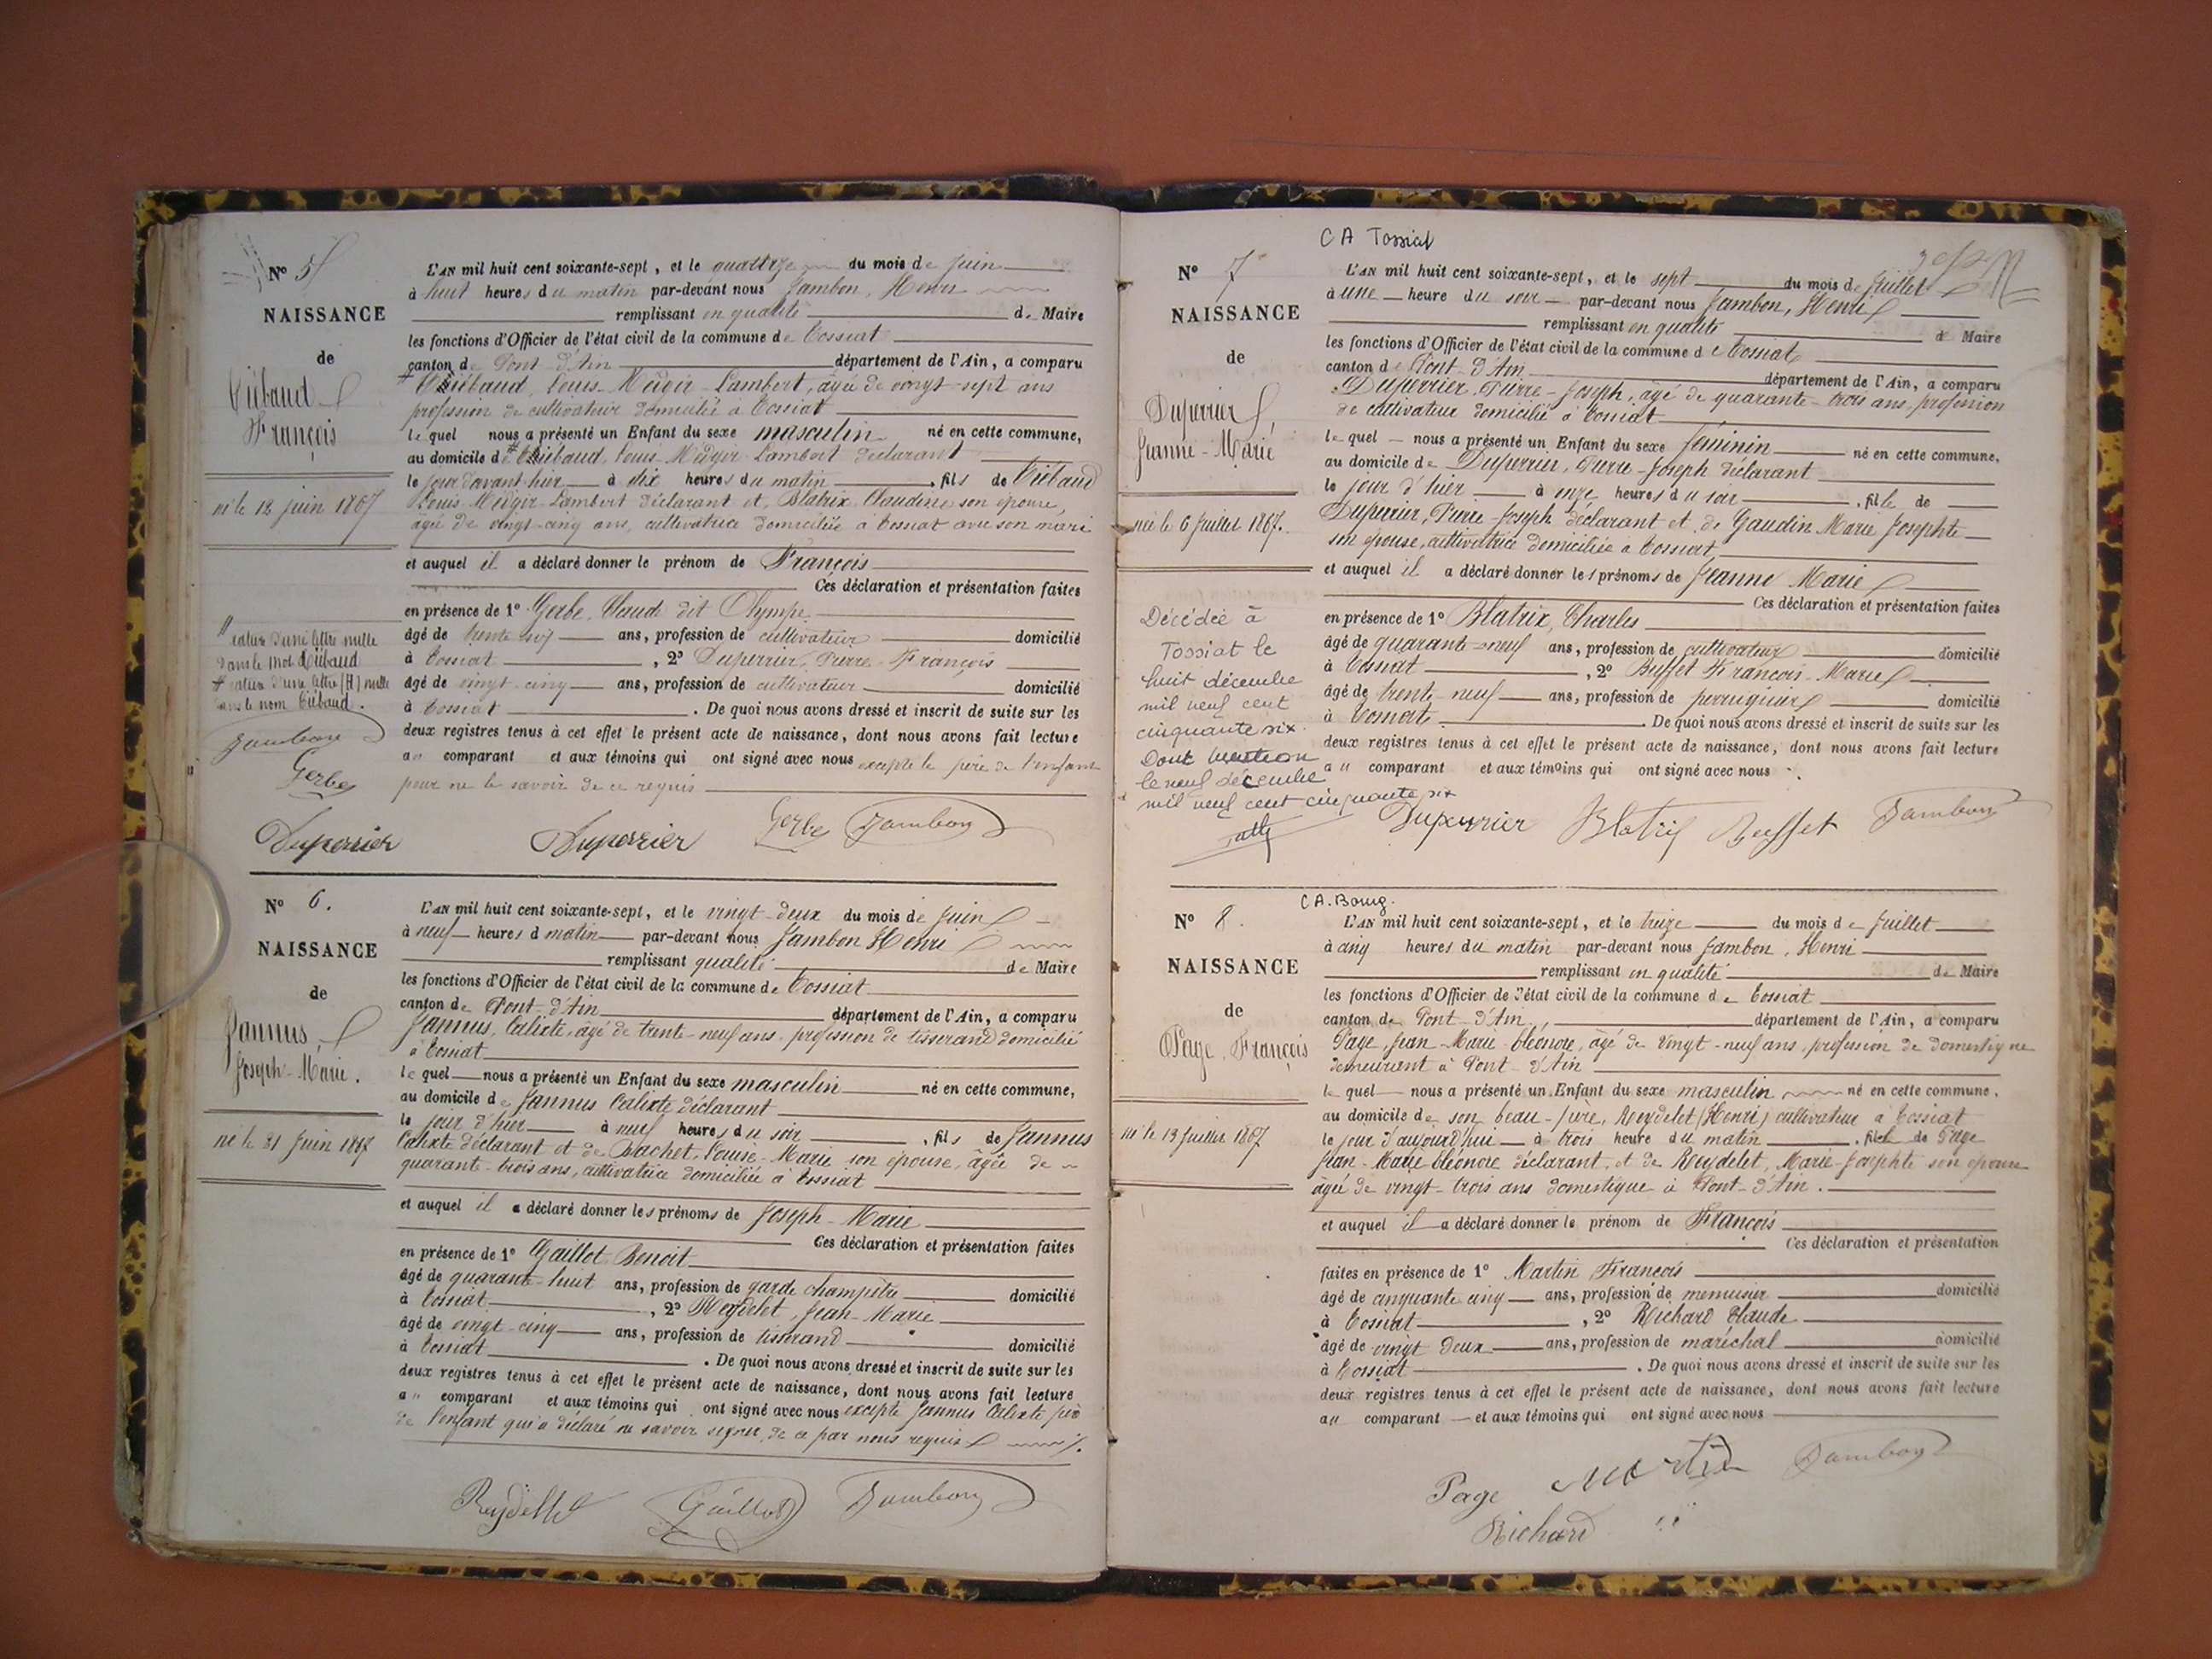 N° 5
NAISSANCE
de
Tiébaud
François
né le 12 juin 1867
rature d'une lettre nulle
dans le mot Tiébaud
rature d'une lettre (H) nulle
dans le nom Tiébaud.
Jambon
Gerbe
Duperrier
L'AN mil huit cent soixante-sept, et le quatorze du mois de juin
à huit heures du matin par-devant nous Jambon, Henri
remplissant en qualité de Maire
les fonctions d'Officier de l'état civil de la commune de Tossiat
canton de Pont d'Ain département de l'Ain, a comparu
Tiébaud, Louis Lambert, âgé de vingt-sept ans
profession de cultivateur domicilié à Tossiat
lequel nous a présenté un Enfant du sexe masculin né en cette commune,
au domicile de Tiébaud, Louis Lambert déclarant
le jour d'avant-hier à dix heures du matin, fils de Tiébaud
Louis Lambert déclarant et Blatrix Claudine son épouse,
âgée de vingt-cinq ans, cultivatrice domiciliée à Tossiat avec son mari
et auquel il a déclaré donner le prénom de François
Ces déclaration et présentation faites
en présence de 1° Gerbe, Claude dit Olympe
âgé de trente ans, profession de cultivateur domicilié
à Tossiat, 2° Duperrier, Pierre François
âgé de vingt-cinq ans, profession de cultivateur domicilié
à Tossiat. De quoi nous avons dressé et inscrit de suite sur les
deux registres tenus à cet effet le présent acte de naissance, dont nous avons fait lecture
au comparant et aux témoins qui ont signé avec nous excepté le père de l'enfant
pour ne le savoir de ce requis
Duperrier Gerbe Jambon
N° 6.
NAISSANCE
de
Jannus,
Joseph-Marie.
né le 21 juin 1867
L'AN mil huit cent soixante-sept, et le vingt-deux du mois de juin
à neuf heures d matin par-devant nous Jambon Henri
remplissant qualité de Maire
les fonctions d'Officier de l'état civil de la commune de Tossiat
canton de Pont-d'Ain département de l'Ain, a comparu
Jannus, Calixte, âgé de trente-neuf ans, profession de tisserand domicilié
à Tossiat
lequel nous a présenté un Enfant du sexe masculin né en cette commune,
au domicile de Jannus Calixte déclarant
le jour d'hier à neuf heures du soir, fils de Jannus
Calixte déclarant et de Bachet, Louise-Marie son épouse, âgée de
quarante-trois ans, cultivatrice domiciliée à Tossiat
et auquel il a déclaré donner les prénoms de Joseph-Marie
Ces déclaration et présentation faites
en présence de 1° Gaillot Benoit
âgé de quarante-huit ans, profession de garde champêtre domicilié
à Tossiat, 2° Reydelet, Jean-Marie
âgé de vingt-cinq ans, profession de tisserand domicilié
à Tossiat. De quoi nous avons dressé et inscrit de suite sur les
deux registres tenus à cet effet le présent acte de naissance, dont nous avons fait lecture
au comparant et aux témoins qui ont signé avec nous excepté Jannus Calixte père
de l'enfant qui a déclaré ne savoir signer, de ce par nous requis
Reydellet Gaillot Jambon
CA Tossiat
N° 7
NAISSANCE
de
Duperrier,
Jeanne-Marie
née le 6 juillet 1867.
Décédée à
Tossiat le
huit décembre
mil neuf cent
cinquante six.
Dont mention
le neuf décembre
mil neuf cent cinquante six
L'AN mil huit cent soixante-sept, et le sept du mois de juillet
à une heure du soir par-devant nous Jambon, Henri
remplissant en qualité d Maire
les fonctions d'Officier de l'état civil de la commune de Tossiat
canton de Pont-d'Ain département de l'Ain, a comparu
Duperrier, Pierre-Joseph, âgé de quarante-trois ans, profession
de cultivateur domicilié à Tossiat
lequel nous a présenté un Enfant du sexe féminin né en cette commune,
au domicile de Duperrier, Pierre-Joseph déclarant
le jour d'hier à onze heures du soir, fille de
Duperrier, Pierre-Joseph déclarant et de Gaudin Marie Josephte
son épouse, cultivatrice domiciliée à Tossiat
et auquel il a déclaré donner les prénoms de Jeanne Marie
Ces déclaration et présentation faites
en présence de 1° Blatrix, Charles
âgé de quarante-neuf ans, profession de cultivateur domicilié
à Tossiat, 2° Buffet François-Marie
âgé de trente-neuf ans, profession de perruquier domicilié
à Tossiat. De quoi nous avons dressé et inscrit de suite sur les
deux registres tenus à cet effet le présent acte de naissance, dont nous avons fait lecture
au comparant et aux témoins qui ont signé avec nous
Duperrier Blatrix Buffet Jambon
CA. Bourg.
N° 8.
NAISSANCE
de
Page, François
né le 13 juillet 1867
L'AN mil huit cent soixante-sept, et le treize du mois de juillet
à cinq heures du matin par-devant nous Jambon, Henri
remplissant en qualité de Maire
les fonctions d'Officier de l'état civil de la commune de Tossiat
canton de Pont-d'Ain, département de l'Ain, a comparu
Page, Jean-Marie-Eléonore, âgé de vingt-neuf ans, profession de domestique
demeurant à Pont-d'Ain
lequel nous a présenté un Enfant du sexe masculin né en cette commune,
au domicile de son beau-frère, Reydelet (Henri) cultivateur à Tossiat
le jour d'aujourd'hui à trois heure du matin, fils de Page
Jean-Marie Eléonore déclarant, et de Reydelet, Marie-Josephte son épouse
âgée de vingt-trois ans domestique à Pont-d'Ain.
et auquel il a déclaré donner le prénom de François
Ces déclaration et présentation
faites en présence de 1° Martin François
âgé de cinquante cinq ans, profession de menuisier domicilié
à Tossiat, 2° Richard Claude
âgé de vingt deux ans, profession de maréchal domicilié
à Tossiat. De quoi nous avons dressé et inscrit de suite sur les
deux registres tenus à cet effet le présent acte de naissance, dont nous avons fait lecture
au comparant et aux témoins qui ont signé avec nous
Page Martin Jambon
Richard